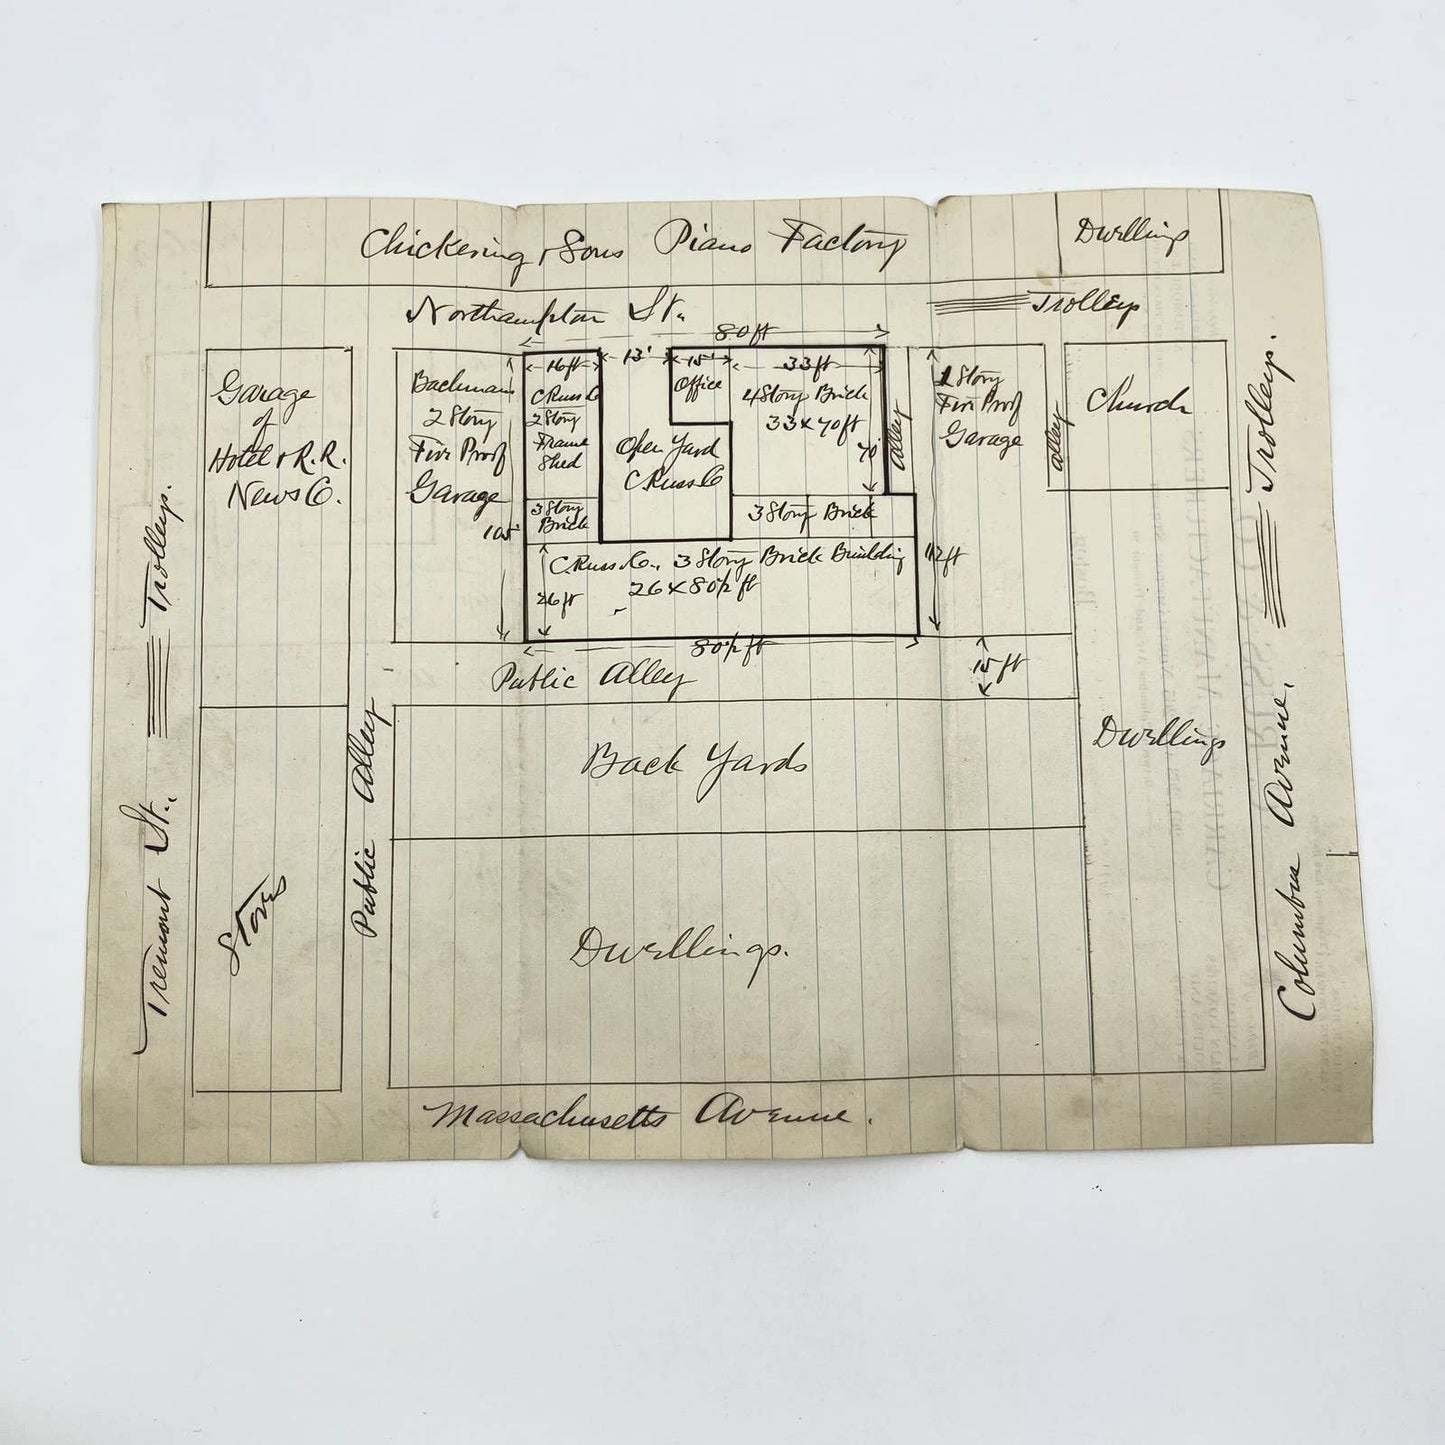 Chickering & Sons Piano Factory
Dwellings
Northampton St.
Trolleys
80 ft
Garage
of
Hotel & R.R.
News Co.
Bachman
2 Story
Fire Proof
Garage
105'
16 ft
C Russ Co
2 Story
Frame
Shed
3 Story
Brick
13'
15'
Office
Open Yard
C Russ Co
33 ft
4 Story Brick
33 x 70 ft
70'
3 Story Brick
Alley
Story
Fire Proof
Garage
112 ft
Alley
Church
C. Russ Co., 3 Story Brick Building
26 x 80½ ft
26 ft
80½ ft
Public Alley
15 ft
Back Yards
Dwellings
Dwellings.
Stores
Public Alley
Tremont St.,
Trolleys.
Columbus Avenue.
Trolleys.
Massachusetts Avenue.